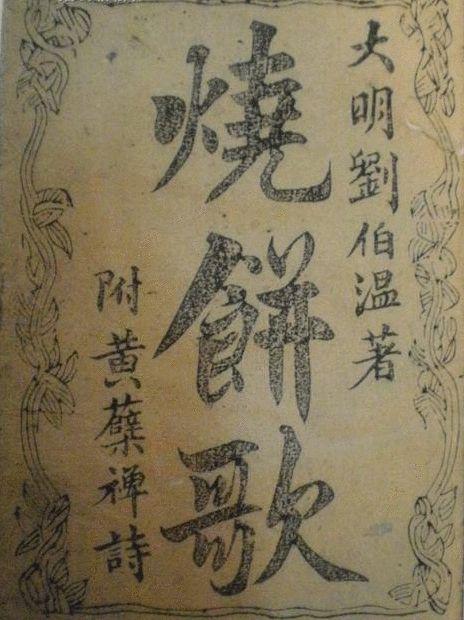 大明劉伯温著
燒餅歌
附黄蘗禅詩